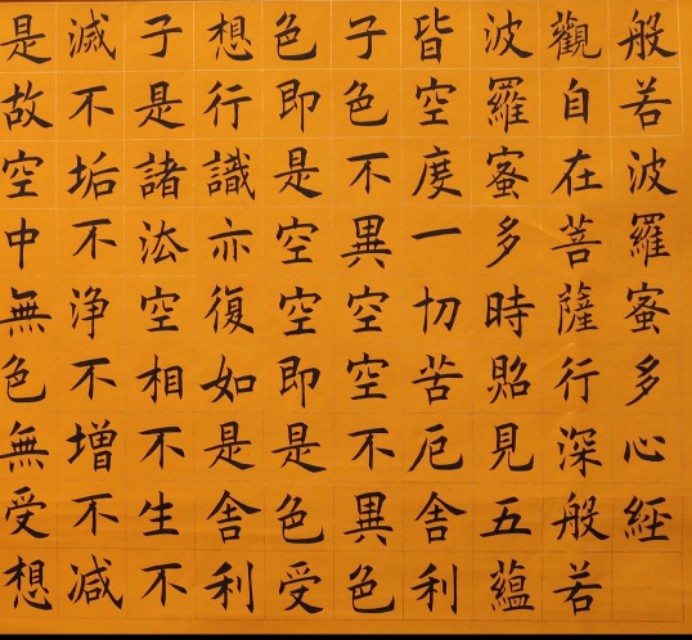 般若波羅蜜多心經
觀自在菩薩行深般若
波羅蜜多時照見五蘊
皆空度一切苦厄舍利
子色不異空空不異色
色即是空空即是色受
想行識亦復如是舍利
子是諸法空相不生不
滅不垢不浄不增不減
是故空中無色無受想